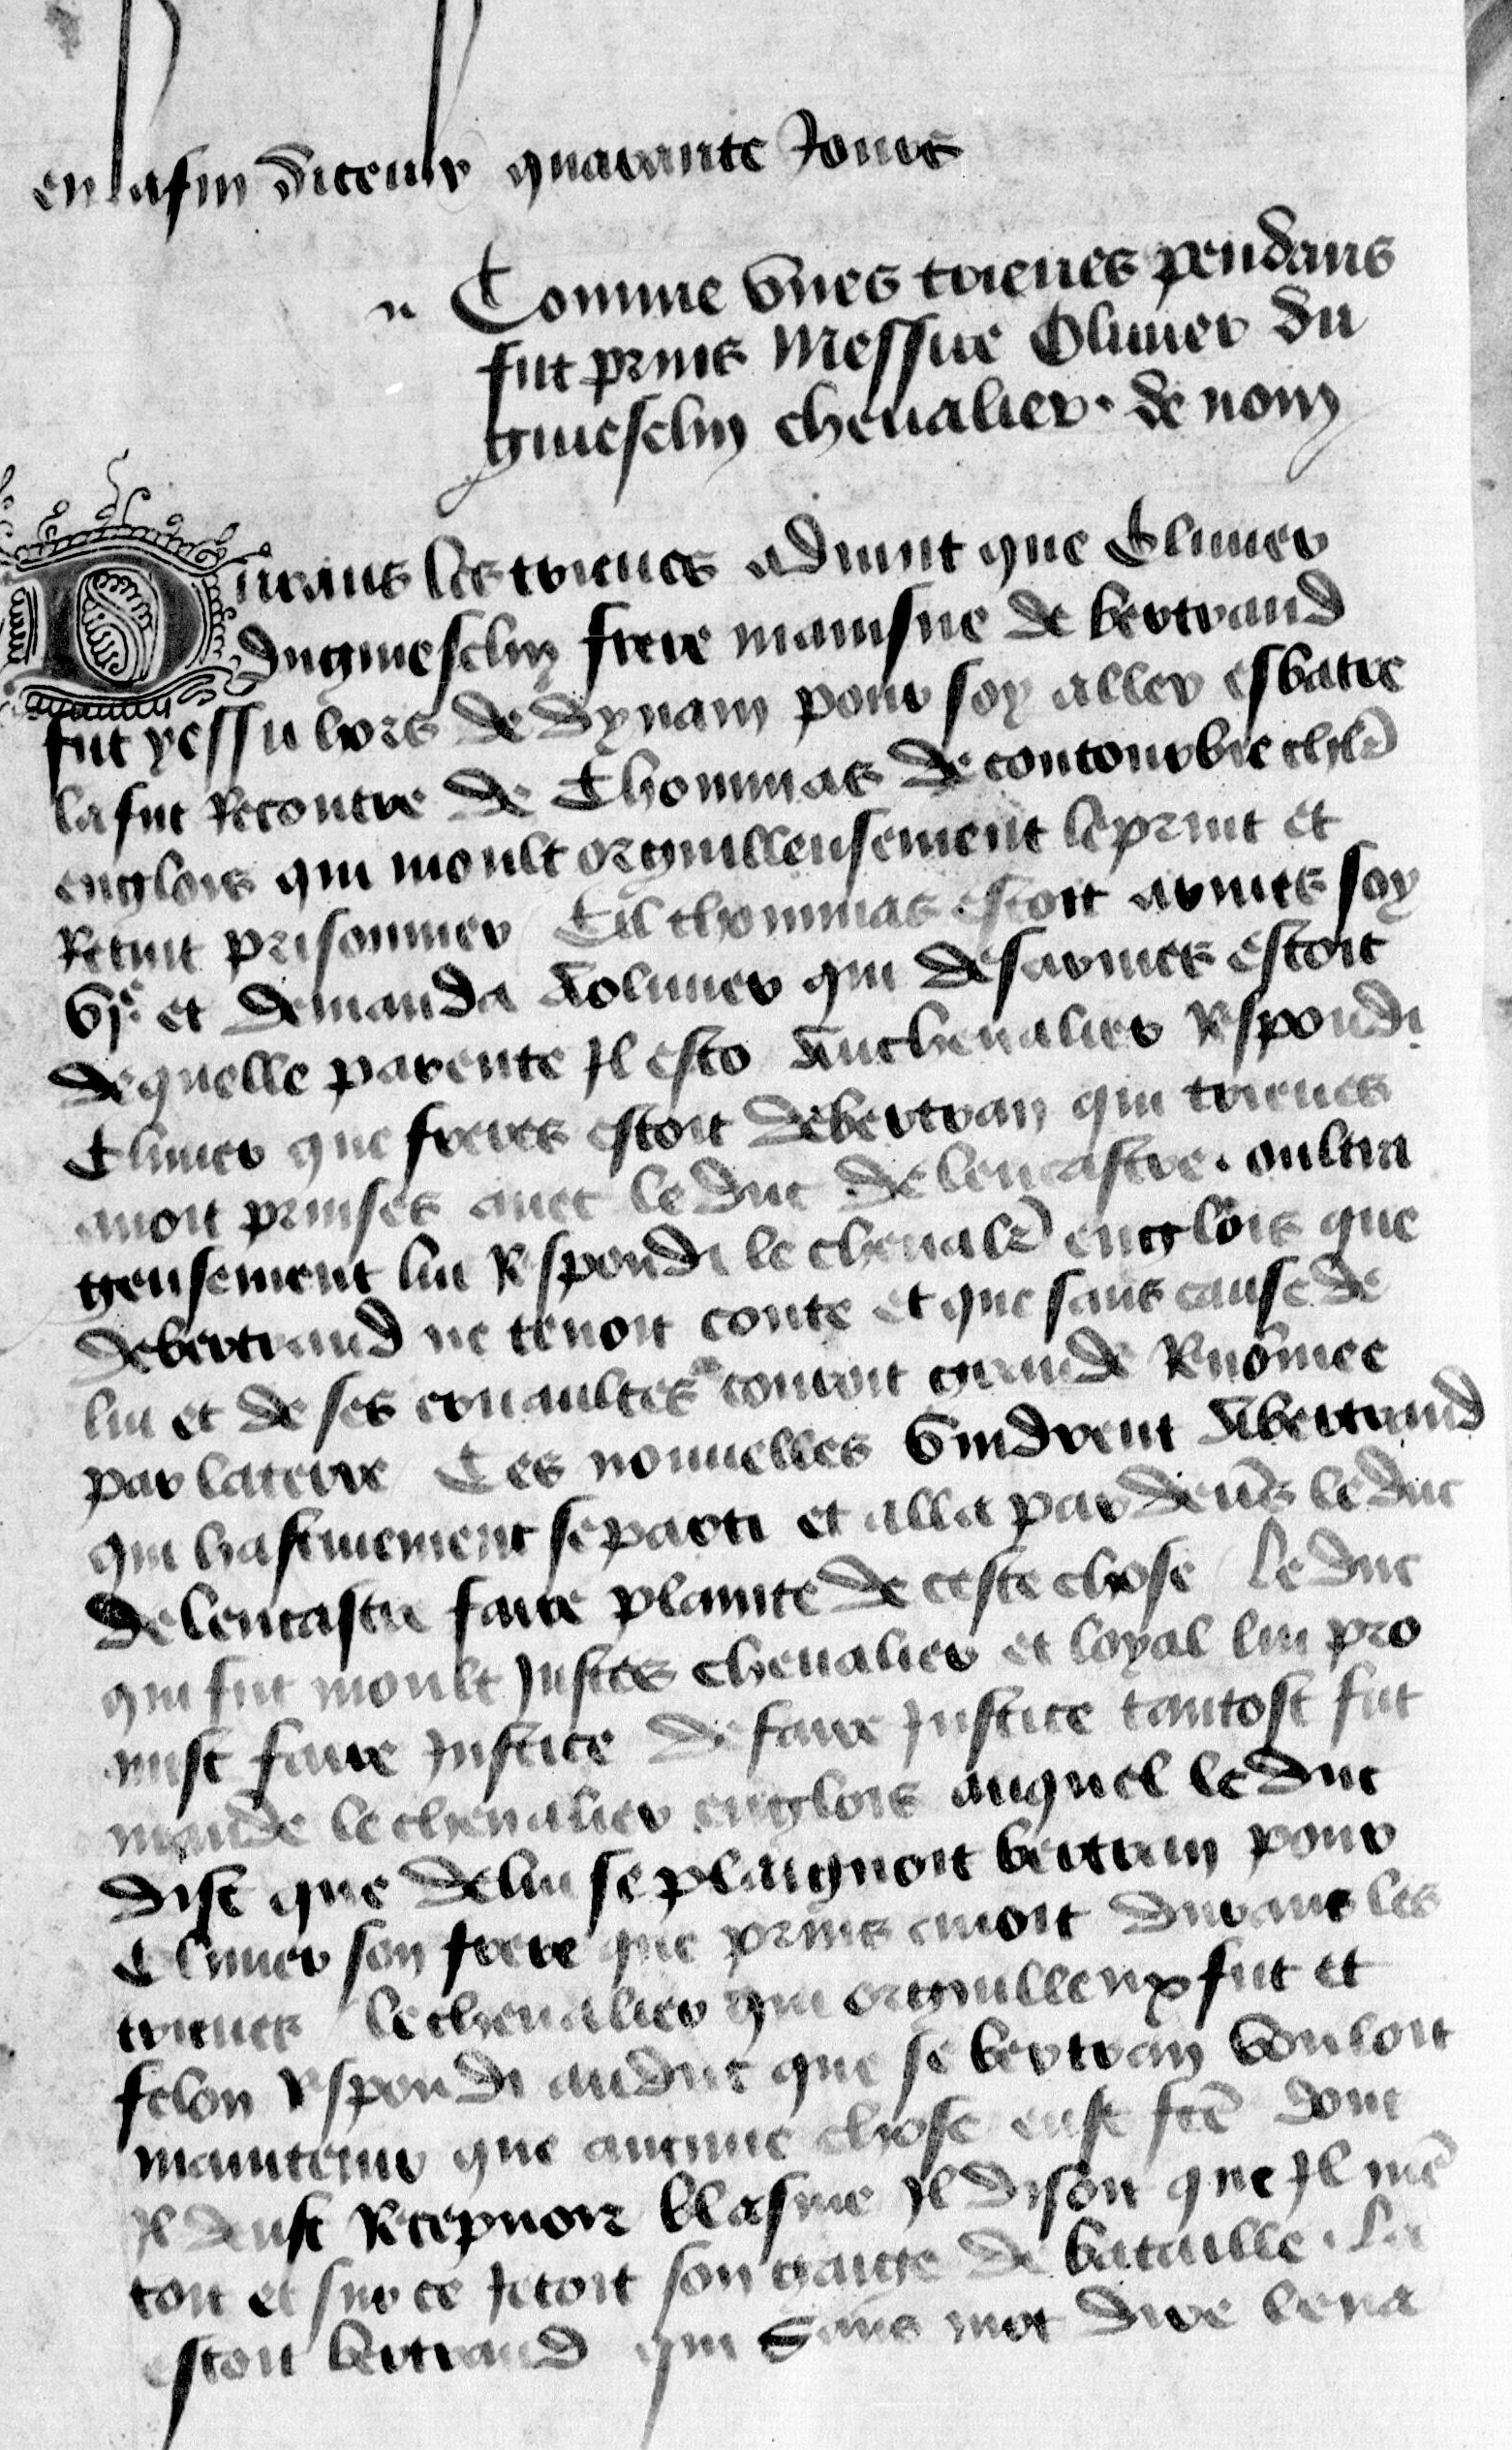 en lafin diceulx quarante Jours
Comme unes trieues pendans
fut prins Messire Oliuier du
guiesclin cheualier de nom
Durans les trieues aduint que Oliuier
duguiesclin frere mainsne de bertrand
fut yessu hors de dynam pour soy aller esbatre
la fut Recontre de Thommas de contourbie chlr
englois qui moult orguilleusement le print et
Retint prisonnier Cil thommas estoit armes soy
et demanda aoliuier qui desarmes estoit
de quelle parente Il esto Au cheualier Respondi
Oliuier que freres estoit de bertran qui trieues
auoit prinses auec le duc de lencastre . oultra
geusement lui Respondi le cheualr englois que
de bertrand ne tenoit conte et que sans cause de
lui et de ses couroit grande Renomee
par la terre Ces nouuelles vindrent A bertrand
qui hastiuement se parti et alla par deuers le duc
de lencastre faire plainte de ceste chose le duc
qui fut moult Justes cheualier et loyal lui pro
mist faire Justice de faire Justice tantost fut
mande le cheualier englois auquel le duc
dist que de lui se plaignoit bertran pour
Oliuier son frere que prins auoit durans les
trieues le cheualier qui orguilleux fut et
felon Respondi au duc que se bertran vouloit
maintenir que aucune chose eust fce dont
Il deust Recepuoir blasme Il disoit que Il men
toit et sur ce Jetoit son gaige de bataille . La
estoit bertrand qui Sans mot dire leua